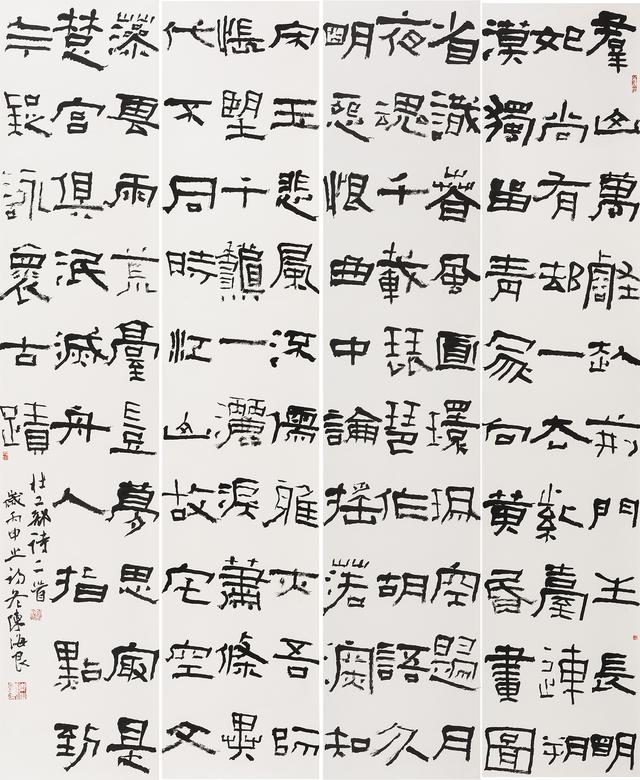 羣山萬壑赴荊門生長明
妃尚有邨一去紫臺連朔
漠獨留青冢向黃昏畫圖
省識春風面環珮空歸月
夜魂千載琵琶作胡語分
明怨恨曲中論搖落深知
宋玉悲風流儒雅亦吾師
悵望千秋一灑淚蕭條異
代不同時江山故宅空文
藻雲雨荒臺豈夢思最是
楚宮俱泯滅舟人指點到
今疑詠懷古蹟
杜工部詩二首
歲丙申之初冬陳海良